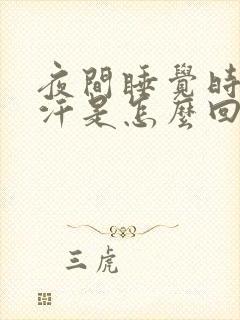 夜間睡覺時
汗是怎麼回
三虎